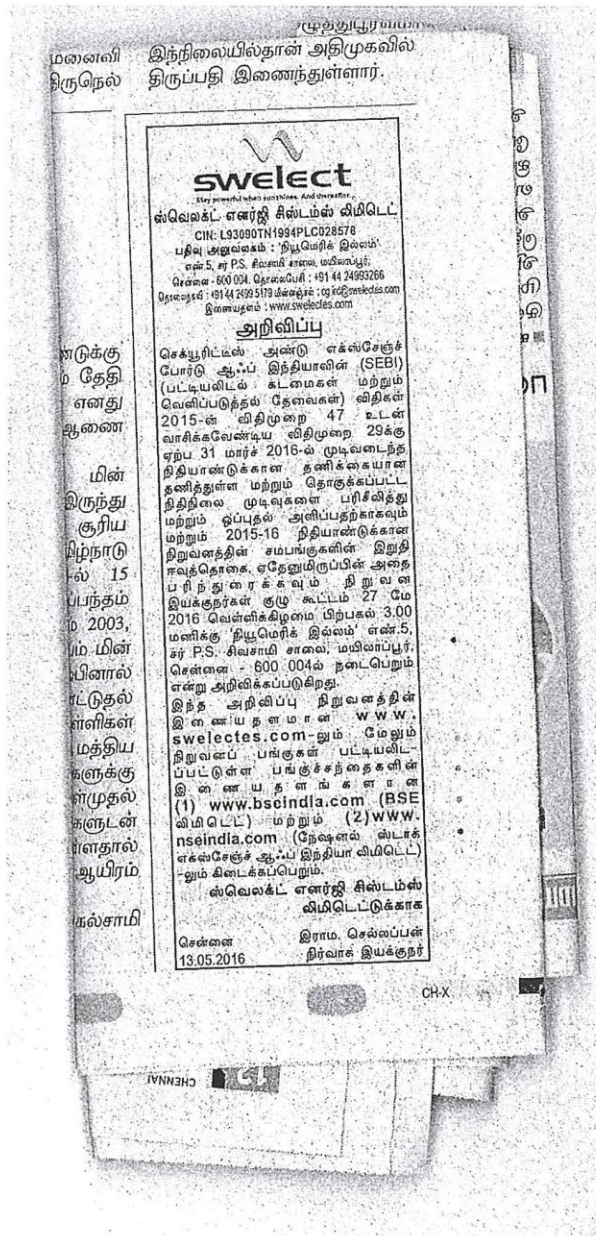 மனைவி
திருநெல்
இந்நிலையில்தான் அதிமுகவில்
திருப்பதி இணைந்துள்ளார்.
swelect
Stay powerful when sun shines. And thereafter..
ஸ்வெலக்ட் எனர்ஜி சிஸ்டம்ஸ் லிமிடெட்
CIN: L93090TN1994PLC028578
பதிவு அலுவலகம் : 'நியூமெரிக் இல்லம்'
எண்.5, சர் P.S. சிவசாமி சாலை, மயிலாப்பூர்,
சென்னை - 600 004. தொலைபேசி : +91 44 24993266
தொலைநகல் : +91 44 2499 5179 மின்னஞ்சல் : cg.ird@swelectes.com
இணையதளம் : www.swelectes.com
அறிவிப்பு
செக்யூரிட்டீஸ் அண்டு எக்ஸ்சேஞ்ச்
போர்டு ஆஃப் இந்தியாவின் (SEBI)
(பட்டியலிடல் கடமைகள் மற்றும்
வெளிப்படுத்தல் தேவைகள்) விதிகள்
2015-ன் விதிமுறை 47 உடன்
வாசிக்கவேண்டிய விதிமுறை 29க்கு
ஏற்ப 31 மார்ச் 2016-ல் முடிவடைந்த
நிதியாண்டுக்கான தணிக்கையான
தனித்துள்ள மற்றும் தொகுக்கப்பட்ட
நிதிநிலை முடிவுகளை பரிசீலித்து
மற்றும் ஒப்புதல் அளிப்பதற்காகவும்
மற்றும் 2015-16 நிதியாண்டுக்கான
நிறுவனத்தின் சம்பங்குகளின் இறுதி
ஈவுத்தொகை, ஏதேனுமிருப்பின் அதை
பரிந்துரைக்கவும் நிறுவன
இயக்குநர்கள் குழு கூட்டம் 27 மே
2016 வெள்ளிக்கிழமை பிற்பகல் 3.00
மணிக்கு 'நியூமெரிக் இல்லம்' எண்.5,
சர் P.S. சிவசாமி சாலை, மயிலாப்பூர்,
சென்னை - 600 004ல் நடைபெறும்
என்று அறிவிக்கப்படுகிறது.
இந்த அறிவிப்பு நிறுவனத்தின்
இணையதளமான www.
swelectes.com-லும் மேலும்
நிறுவனப் பங்குகள் பட்டியலிட-
ப்பட்டுள்ள பங்குச்சந்தைகளின்
இணையதளங்களான
(1) www.bseindia.com (BSE
லிமிடெட்) மற்றும் (2)www.
nseindia.com (நேஷனல் ஸ்டாக்
எக்ஸ்சேஞ்ச் ஆஃப் இந்தியா லிமிடெட்)
-லும் கிடைக்கப்பெறும்.
ஸ்வெலக்ட் எனர்ஜி சிஸ்டம்ஸ்
லிமிடெட்டுக்காக
சென்னை
13.05.2016
இராம. செல்லப்பன்
நிர்வாக இயக்குநர்
ண்டுக்கு
ம் தேதி
எனது
ஆணை
மின்
இருந்து
சூரிய
மிழ்நாடு
-ல் 15
ப்பந்தம்
ம் 2003,
ம் மின்
பினால்
ட்டுதல்
ள்ளிகள்
மத்திய
களுக்கு
ள்முதல்
களுடன்
ளதால்
ஆயிரம்
கல்சாமி
CH-X
CHENNAI